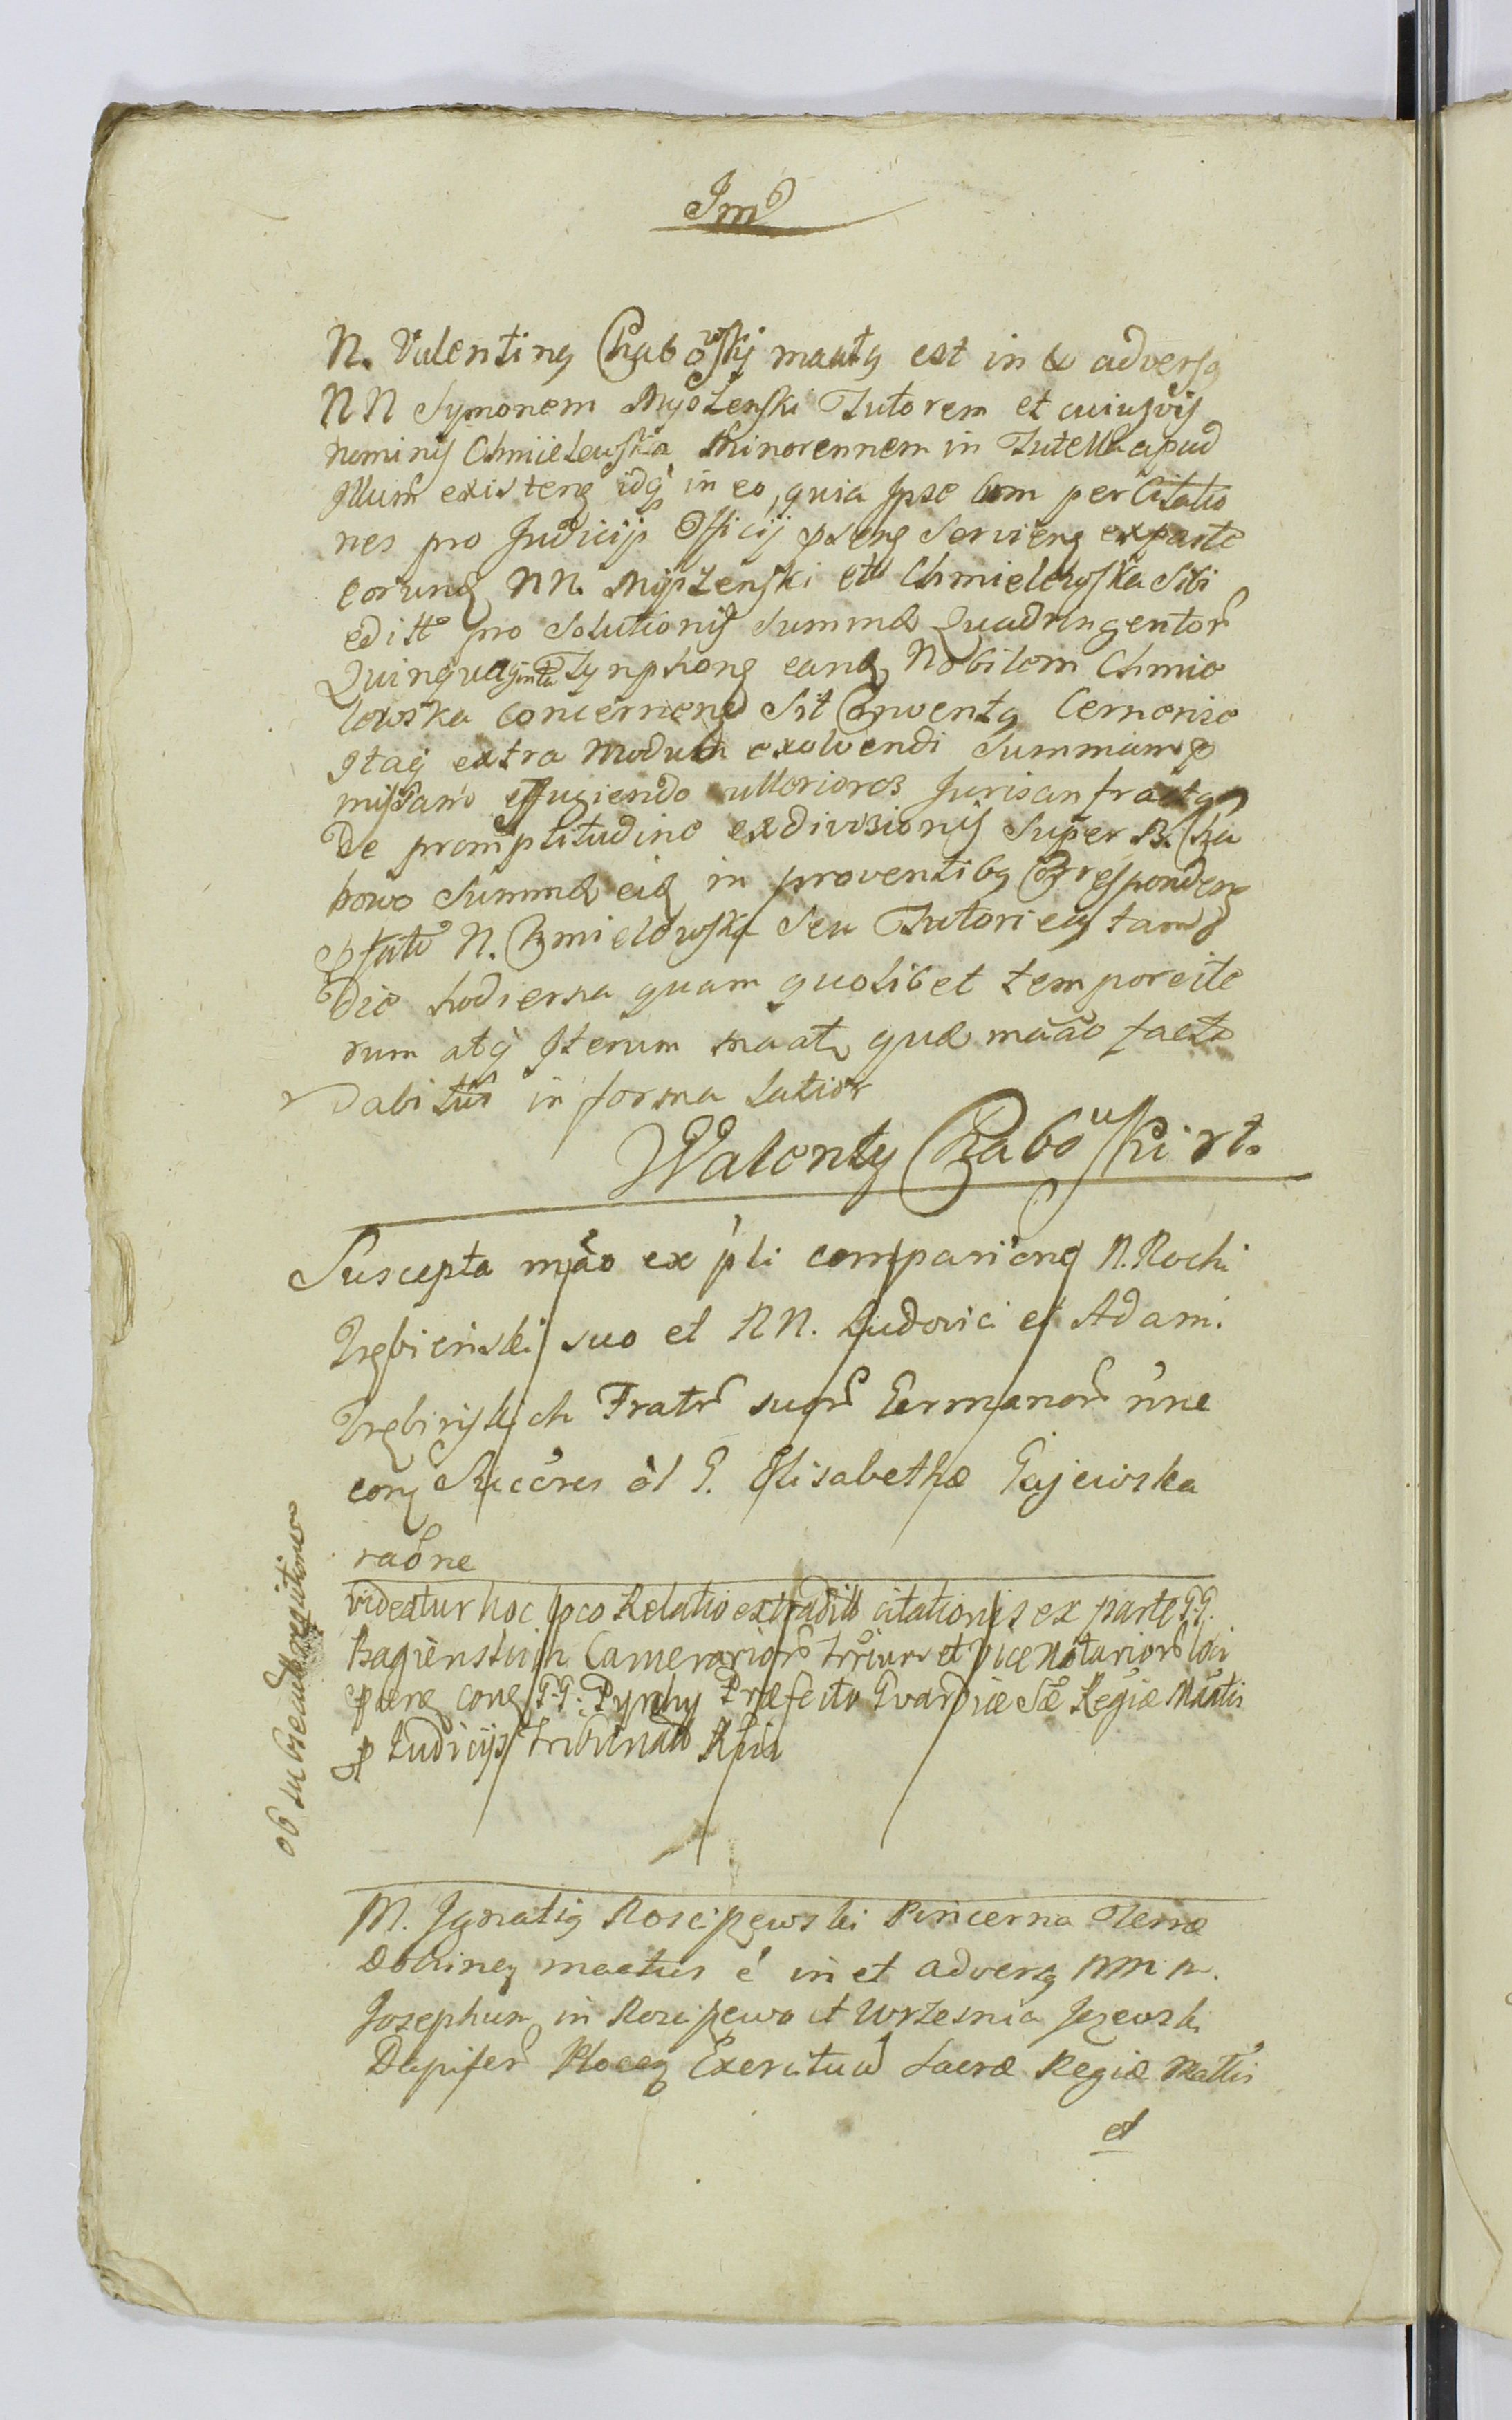 Imo
N. Valenting Chabowskij maatg est in & adversg
NN Symonem Myszenski Tutorem et cuiusvis
nominis Chmielewska Minorennem in Tutella apud
Illum existeng idq in eo, quia Ipse Cum per Citatio
nes pro Judicijs Officij pseng Servieng ex parte
eorundg NN. Myszenski et Chmielewska Sibi
editt pro solutionis summæ Quadringentor
Quinquaginta Tynphong eandg Nobilem Chmie
lewska Concerneng Sit Conventg Cernensq
Itaq extra Modum exolvendi Summam p
missam effugiendo ulteriores Juris anfractg
De promptitudine exdivisionis Super B. Cha
bowo Summæ eid in proventibg Correspondeng
pfato N. Chmielewska Seu Tutori eig tam
Die hodierna quam quolibet tempore ite
rum atq Iterum maatr quæ maao facto
dabitur in forma latior
Walenty Chabowski rt.
Suscepta mao ex pli comparieng N. Rochi
Trębinski suo et NN. Ludovici et Adami
Trębinskich Fratr suor Germanor nne
corg Succres ol G. Elisabethæ Gajewska
raone
videatur hoc loco Relatio extradit citationis ex parte GG.
Camerarior et vice Notarior
pseng cong GG. Præfecto Gvardiæ Sæ Regiæ Mattis
p Judicijs Tribunal
M. Ignatig Rosciszewski Pincerna Terræ
Dobrineg maatus e in et adversg
Josephum in Rosciszewo et Wrzesnia Jezewski
Dapifer Ploceg Exercituu Sacræ Regiæ Mattis
et